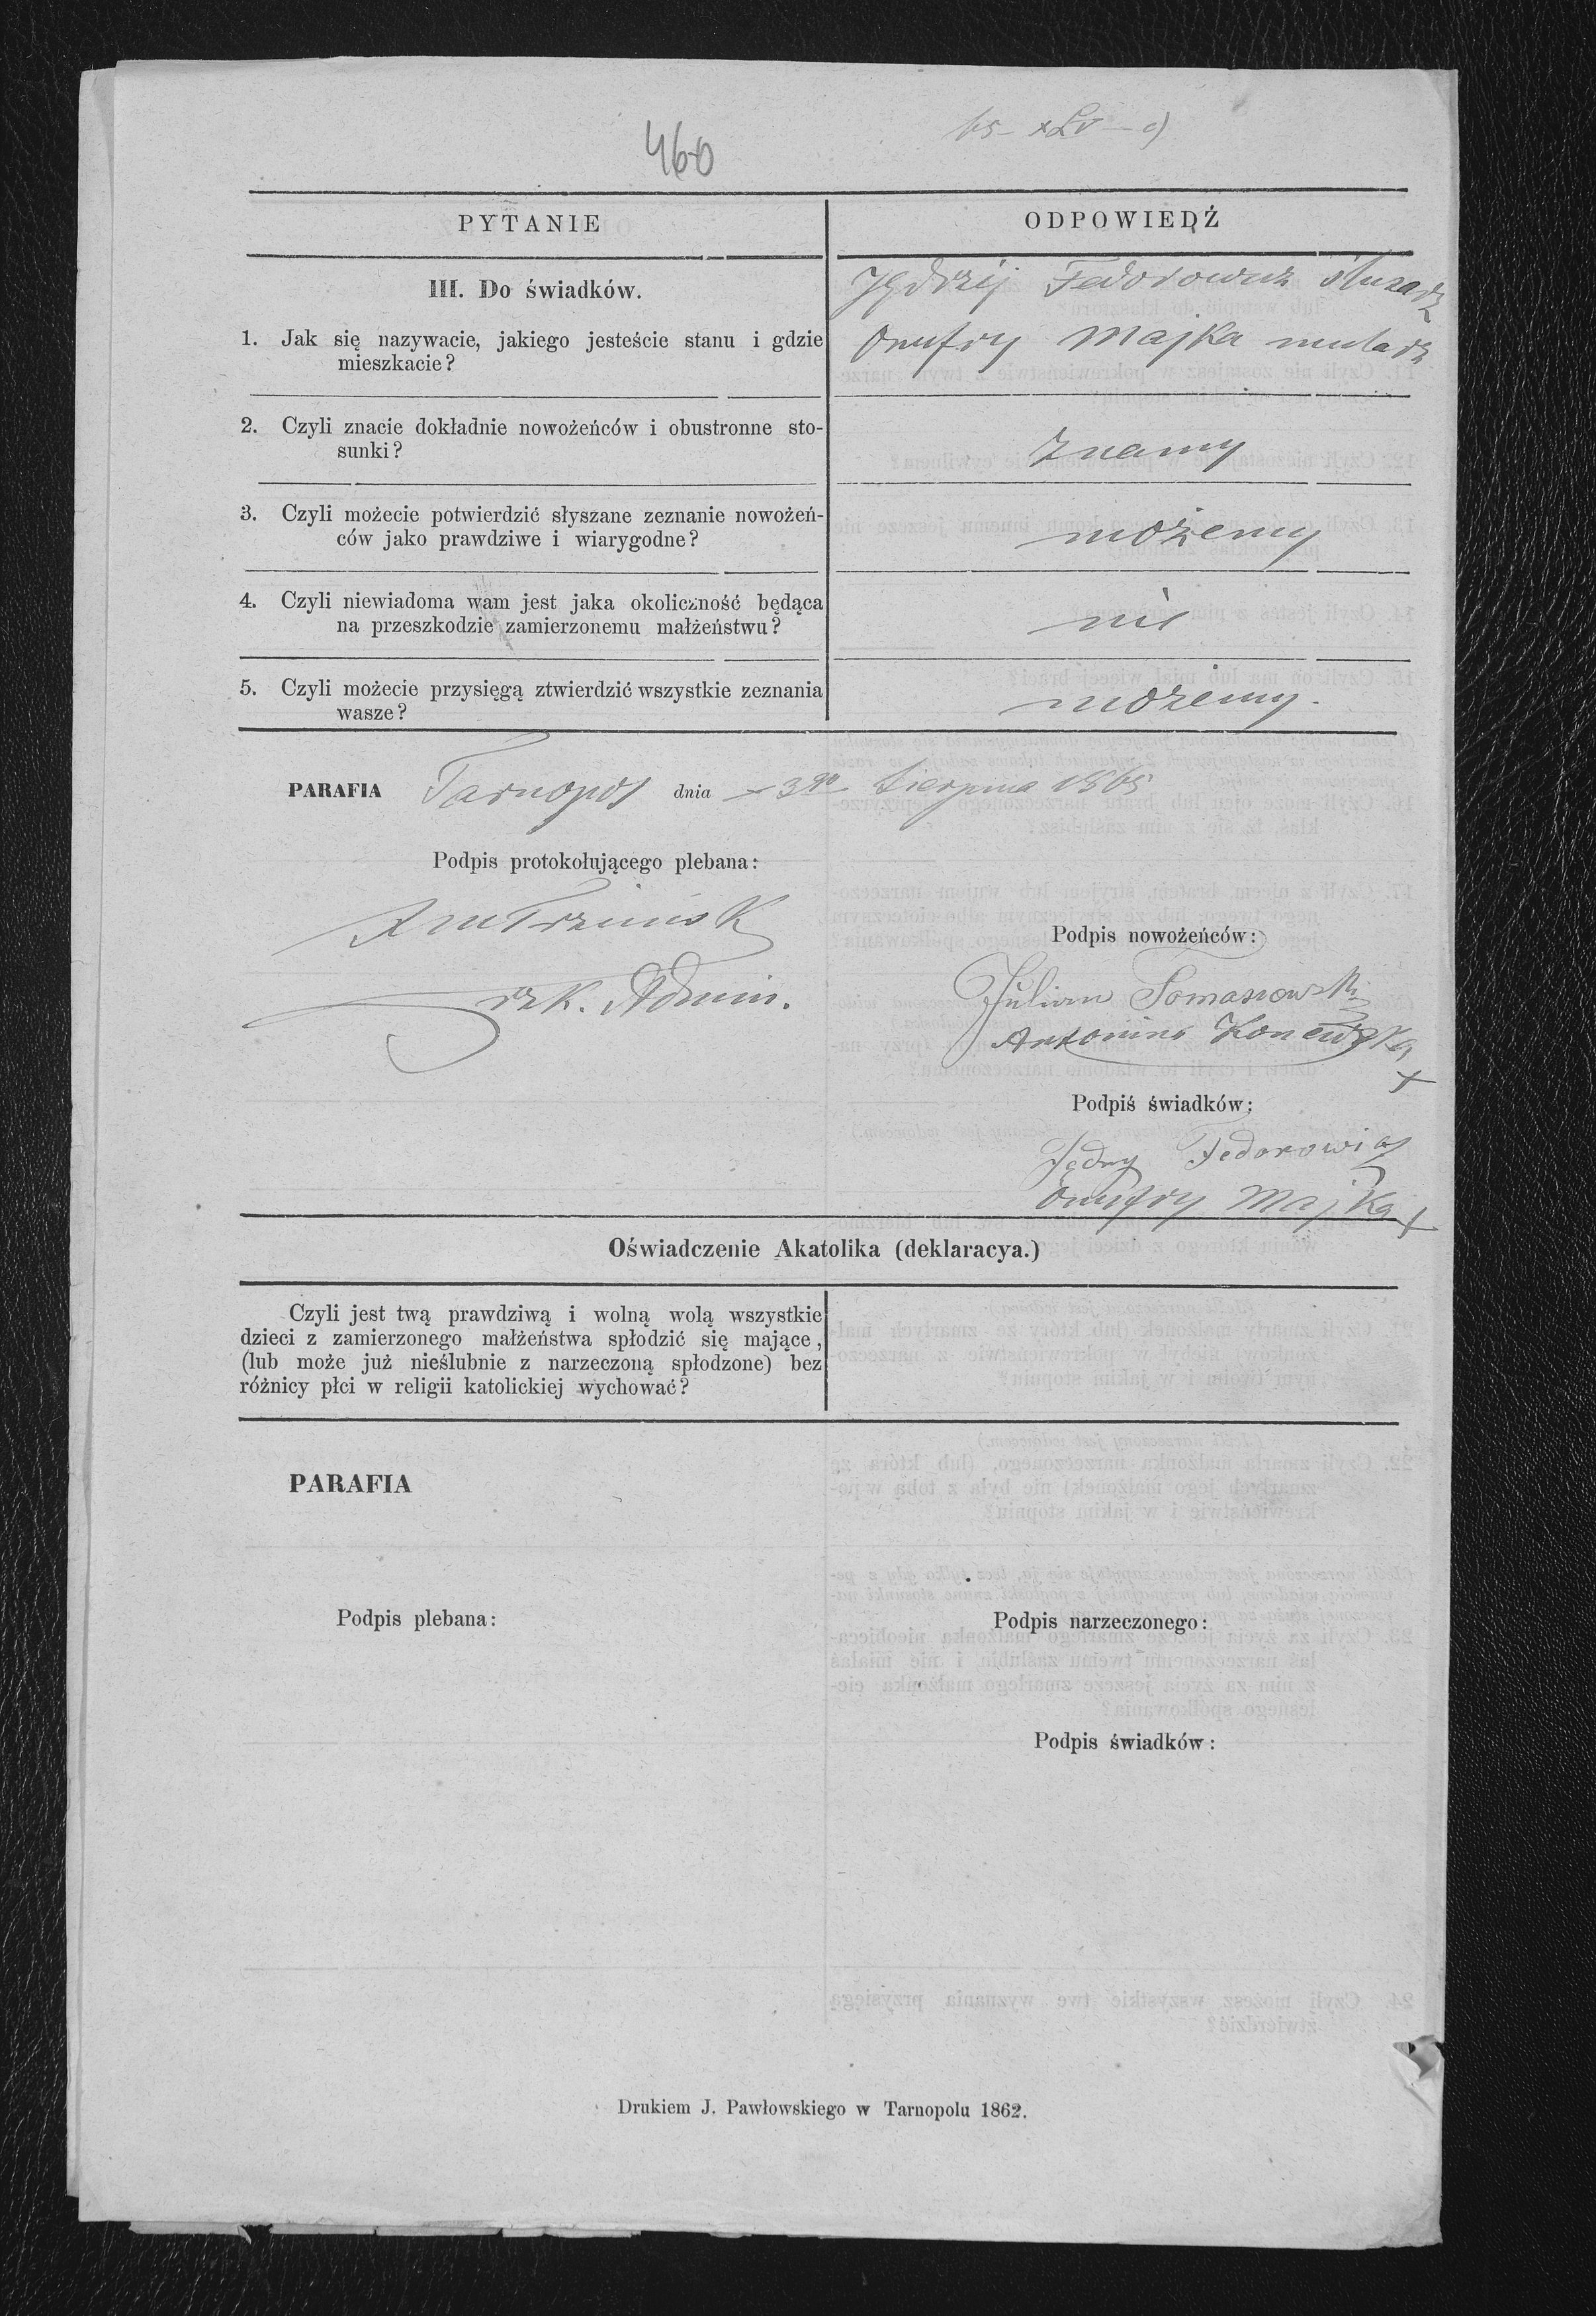 460
PYTANIE
ODPOWIEDŹ
III. Do świadków.
1. Jak się nazywacie, jakiego jesteście stanu i gdzie
mieszkacie?
Jędrzij Fedorowicz
Onufry Majka mularz
2. Czyli znacie dokładnie nowożeńców i obustronne sto-
sunki?
znamy
3. Czyli możecie potwierdzić słyszane zeznanie nowożeń-
ców jako prawdziwe i wiarygodne?
możemy
4. Czyli niewiadoma wam jest jaka okoliczność będąca
na przeszkodzie zamierzonemu małżeństwu?
nie
5. Czyli możecie przysięgą ztwierdzić wszystkie zeznania
wasze?
możemy.
PARAFIA Tarnopol dnia 3go Sierpnia 1865
Podpis protokołującego plebana:
rzk. Admin.
Podpis nowożeńców:
Julian Tomaszewski
Antonina Konewska
+
Podpiś świadków:
Fedorowicz
Onufry Majka +
Oświadczenie Akatolika (deklaracya.)
Czyli jest twą prawdziwą i wolną wolą wszystkie
dzieci z zamierzonego małżeństwa spłodzić się mające,
(lub może już nieślubnie z narzeczoną spłodzone) bez
różnicy płci w religii katolickiej wychować?
PARAFIA
Podpis plebana:
Podpis narzeczonego:
Podpis świadków:
Drukiem J. Pawłowskiego w Tarnopolu 1862.